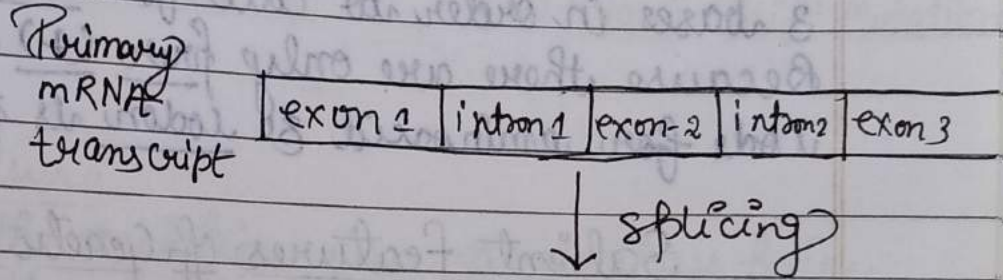 Primary
mRNA
transcript
exon 1 intron 1 exon-2 intron2 exon 3
splicing